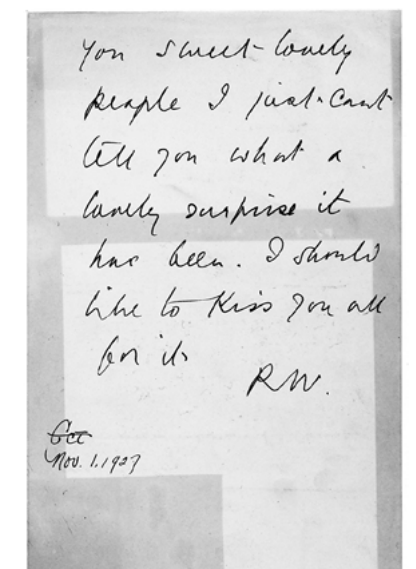 You sweet lovely
people I just can't
tell you what a
lovely surprise it
has been. I should
like to kiss you all
for it.
R W.
Oct
Nov. 1. 1927